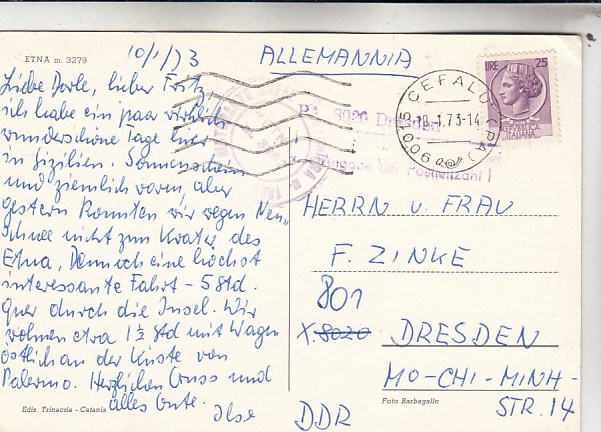 ETNA m. 3279
10/1/73
ALLEMANNIA
Liebe Dorle, lieber Fritz,
ich habe ein paar wirklich
wunderschöne Tage hier
in Sizilien. Sonnenschein
und ziemlich warm, aber
gestern konnten wir wegen Neu-
Schnee nicht zum Krater des
Etna, Dennoch eine höchst
interessante Fahrt - 5 Std.
quer durch die Insel. Wir
wohnen etwa 1½ Std mit Wagen
östlich an der Küste von
Palermo. Herzlichen Gruss und
alles Gute. Ilse
Ediz. Trinacria - Catania
LIRE 25
REPVBBLICA
ITALIANA
CEFALU (PA)
90015
10.1.73-14
8020 Dresden
der Postleitzahl!
HERRN u. FRAU
F. ZINKE
801
X. 8020 DRESDEN
HO-CHI-MINH-
STR. 14
DDR
Foto Barbagallo